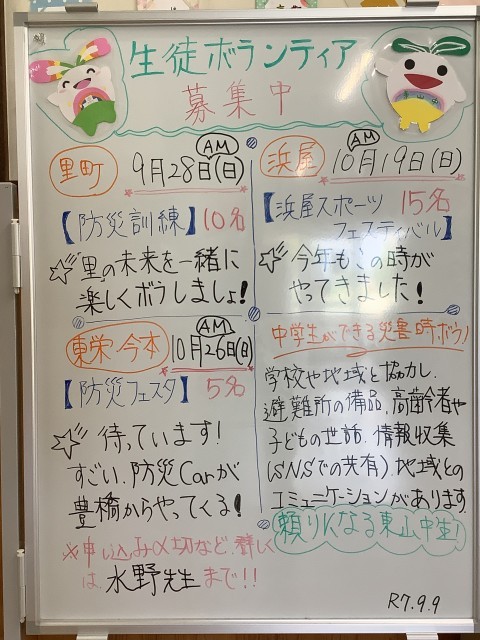 生徒ボランティア
募集中
里町
AM
9月28日(日)
【防災訓練】10名
☆"里"の未来を一緒に
楽しくボラしましょ!
東栄・今本
AM
10月26日(日)
【防災フェスタ】5名
☆待っています!
すごい、防災Carが
豊橋からやってくる!
※申し込み〆切など、詳しく
は、水野先生まで!!
浜屋
AM
10月19日(日)
【浜屋スポーツ 15名
フェスティバル】
☆今年もこの時が
やってきました!
中学生ができる災害時ボラ!
学校や地域と協力し、
避難所の備品、高齢者や
子どもの世話、情報収集
(SNSでの共有)地域との
コミュニケーションがあります
頼りになる東山中生!
R7.9.9